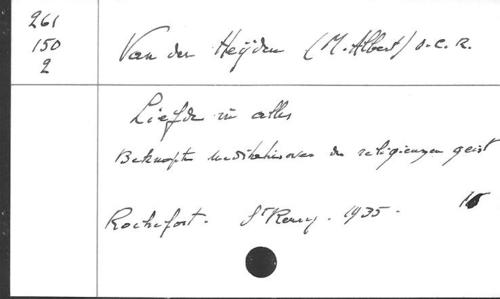 261
150
2
Van der Heÿden (M. Albert) o.c.R.
Liefde in alles
Beknopte meditatie over den religieuzen geest
Rochefort. St Remy. 1935.